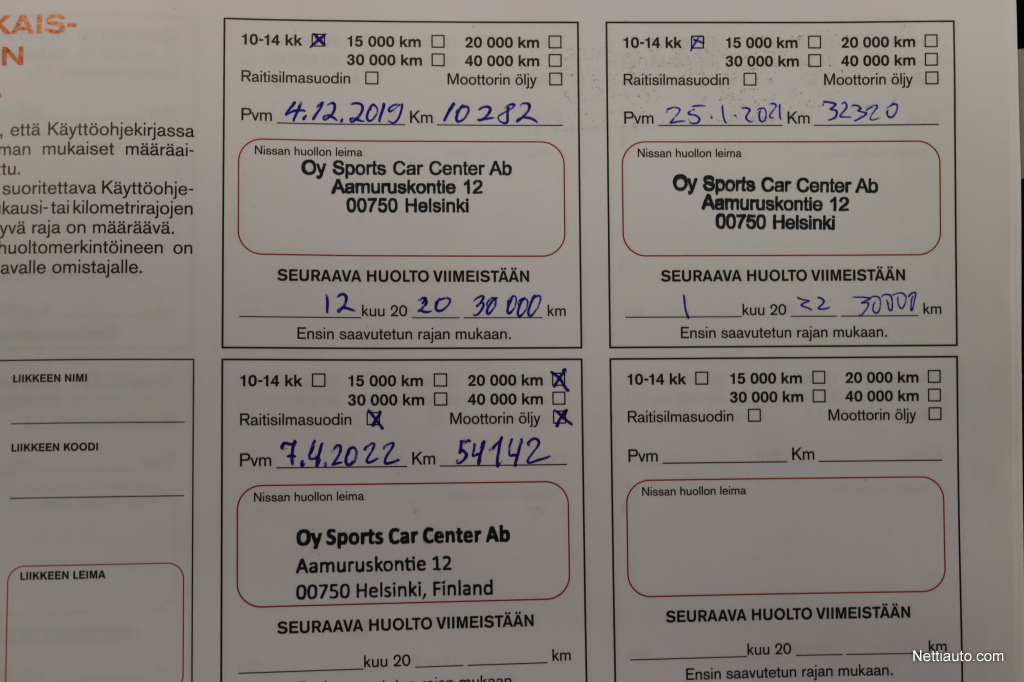 KAIS-
N
, että Käyttöohjekirjassa
man mukaiset määräai-
ttu.
suoritettava Käyttöohje-
ukausi- tai kilometrirajojen
yvä raja on määräävä.
huoltomerkintöineen on
avalle omistajalle.
LIIKKEEN NIMI
LIIKKEEN KOODI
LIIKKEEN LEIMA
10-14 kk 15 000 km 20 000 km
30 000 km 40 000 km
Raitisilmasuodin Moottorin öljy
Pvm 4.12.2019 Km 10282
Nissan huollon leima
Oy Sports Car Center Ab
Aamuruskontie 12
00750 Helsinki
SEURAAVA HUOLTO VIIMEISTÄÄN
12 kuu 20 20 30 000 km
Ensin saavutetun rajan mukaan.
10-14 kk 15 000 km 20 000 km
30 000 km 40 000 km
Raitisilmasuodin Moottorin öljy
Pvm 25.1.2021 Km 32320
Nissan huollon leima
Oy Sports Car Center Ab
Aamuruskontie 12
00750 Helsinki
SEURAAVA HUOLTO VIIMEISTÄÄN
1 kuu 20 22 30000 km
Ensin saavutetun rajan mukaan.
10-14 kk 15 000 km 20 000 km
30 000 km 40 000 km
Raitisilmasuodin Moottorin öljy
Pvm 7.4.2022 Km 54142
Nissan huollon leima
Oy Sports Car Center Ab
Aamuruskontie 12
00750 Helsinki, Finland
SEURAAVA HUOLTO VIIMEISTÄÄN
kuu 20 km
Ensin saavutetun rajan mukaan.
10-14 kk 15 000 km 20 000 km
30 000 km 40 000 km
Raitisilmasuodin Moottorin öljy
Pvm Km
Nissan huollon leima
SEURAAVA HUOLTO VIIMEISTÄÄN
kuu 20 km
Ensin saavutetun rajan mukaan.
Nettiauto.com